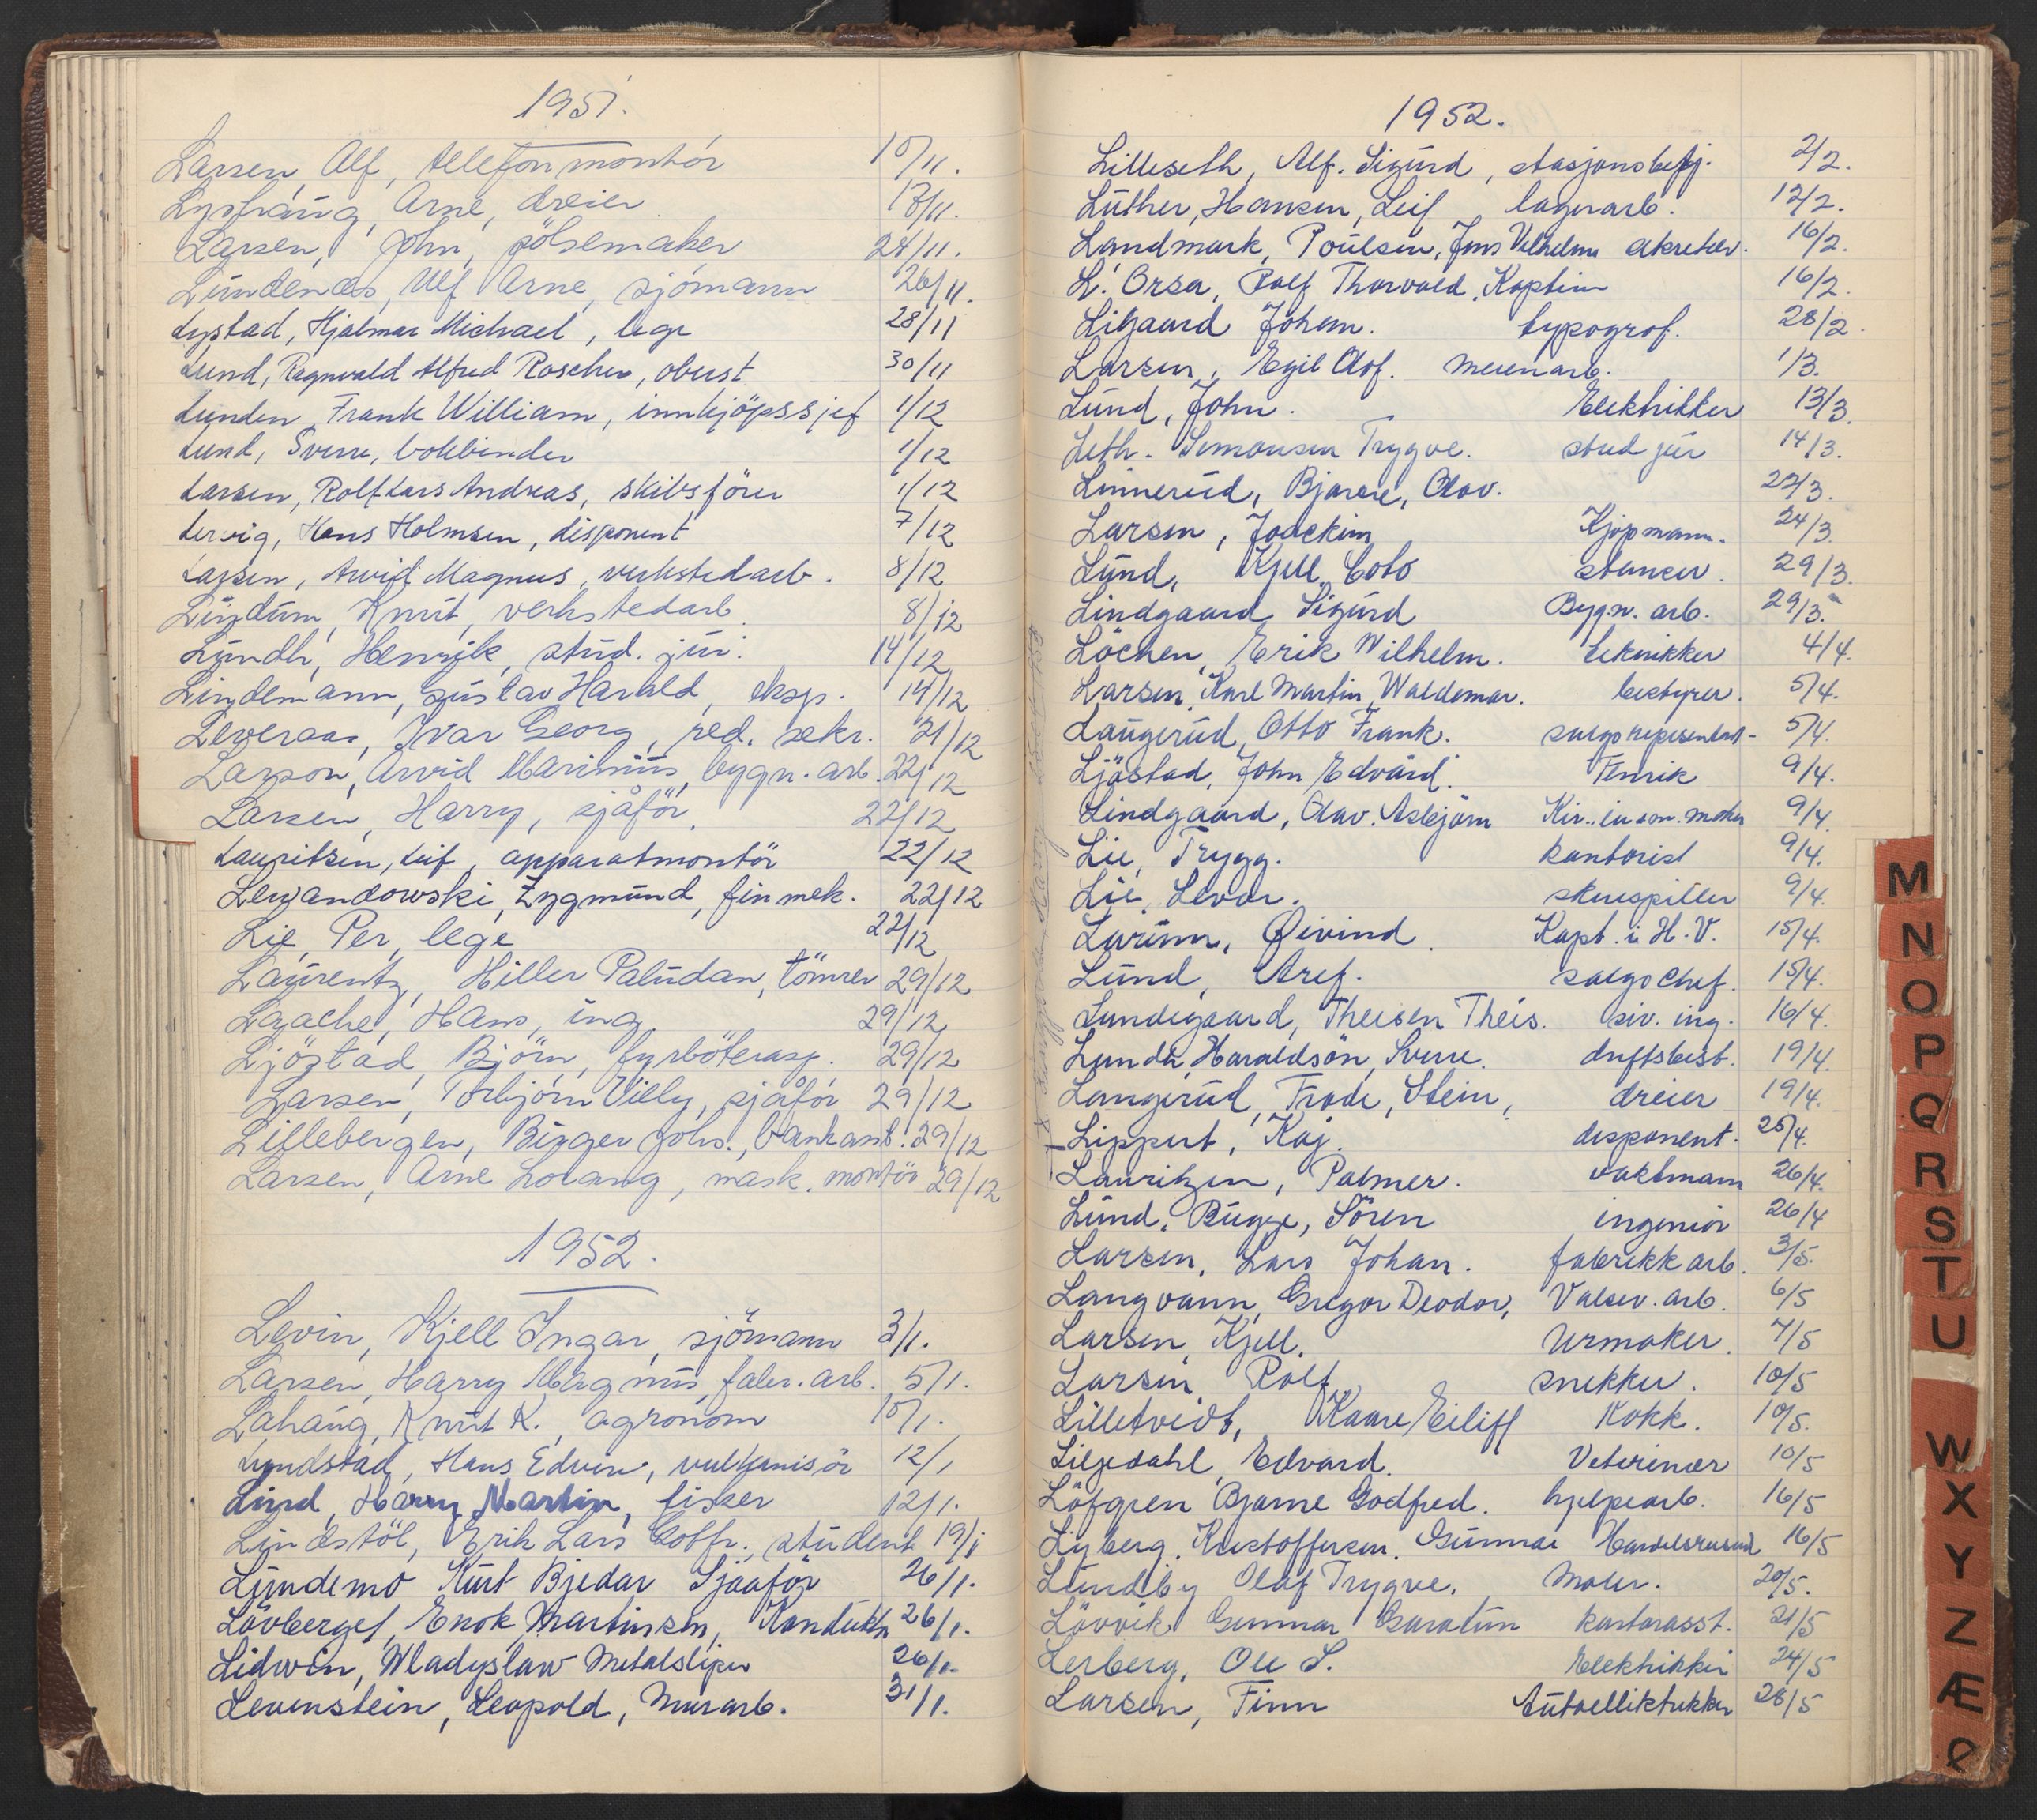 1951.
Larsen, Alf, telefonmontör 10/11.
Lyshaug, Arne, dreier 17/11.
Larsen, John, pölsemaker 24/11.
Lundenæs, Ulf Arne, sjömann 26/11.
Lystad, Hjalmar Michael, lege 28/11
Lund, Ragnvald Alfred Roscher, oberst 30/11
Lunden Frank William, innkjöpssjef 1/12
Lund, Sverre, bokbinder 1/12
Larsen, Rolf Lars Andreas, skibsförer 1/12
Lervig, Hans Holmsen, disponent 7/12
Larsen, Arvid Magnus, verkstedarb. 8/12
Lindum, Knut, verkstedarb. 8/12
Lundh, Henrik, stud. jur. 14/12
Lindemann, Gustav Harald, eksp. 14/12
Leveraas, Ivar Georg, red. sekr. 21/12
Larson, Arvid Marinius, bygn. arb. 22/12
Larsen, Harry, sjåför. 22/12
Lauritzen, Leif, apparatmontör 22/12
Lewandowski, Zygmund, finmek. 22/12
Lie, Per, lege 22/12
Laurentz, Hiller Paludan, tömrer 29/12
Laache, Hans, ing. 29/12
Ljöstad, Björn, fyrböterasp. 29/12
Larsen, Torbjörn Villy, sjåför 29/12
Lillebergen, Birger Johs., bankass. 29/12
Larsen, Arne Lorang, mask. montör 29/12
1952.
Levin, Kjell Ingar, sjömann 3/1.
Larsen, Harry Magnus, fabr. arb. 5/1.
Lahaug, Knut K., agronom 10/1.
Lyndstad, Hans Edvin, vulkanisör 12/1
Lind, Harry Martin, fisker 12/1.
Lindstöl, Erik Lars Gottfr., student 19/1
Lundemo Kurt Bjedar Sjaaför 26/1.
Lövberget, Enok Martinsen, Konduktr 26/1.
Lidwin, Wladyslaw Metalsliper 26/1.
Levenstein, Leopold, Murarb. 31/1.
1952.
Lilleseth, Alf. Sigurd, stasjonsbetj. 2/2.
Luther, Hansen, Leif lagerarb. 12/2.
Landmark, Poulsen, Jens Vilhelm sekretær. 16/2.
L'Orsa, Rolf Thorvald, Kaptein 16/2.
Ligaard Johan. typograf. 28/2.
Larsen, Egil Olof. meieriarb. 1/3.
Lund, John. Elektrikker 13/3.
Leth. Simonsen Trygve. stud jur 14/3.
Linnerud, Bjarne, Olav. 22/3.
Larsen, Joackim Kjöpmann. 24/3.
Lund, Kjell Coto stanser. 29/3.
Lindgaard Sigurd Bygn. arb. 29/3.
Löchen, Erik Wilhelm. teknikker 4/4.
Larsen, Karl Martin Waldemar. bestyrer. 5/4.
Laugerud, Otto Frank. salgsrepresentant 5/4.
Ljöstad, John Edvard. Fenrik 9/4.
Lindgaard, Olav. Asbjörn Kir. insm. maker 9/4.
Lie, Trygg. kontorist 9/4.
Lie, Levor. skuespiller 9/4.
Larum, Øivind. Kapt. i H.V. 15/4.
Lund, Aref. salgschef. 15/4.
Lundegaard, Theisen Theis. siv. ing. 16/4.
Lunda, Haraldsön, Sverre. driftsbest. 19/4.
Langerud, Frode, Stein, dreier 19/4.
Lippert, Kaj. disponent. 25/4.
Lauritzen, Palmer. vaktmann 26/4.
Lund, Bugge, Sören ingeniör 26/4
Larsen, Lars Johan. fabrikkarb. 3/5.
Langvann, Gregor Deodor, Valsev. arb. 6/5
Larsen, Kjell. Urmaker. 7/5
Larsen, Rolf snekker. 10/5
Lilletvedt, Kaare Eiliff Kokk. 10/5.
Liljedahl, Edvard. Veterinær 10/5
Löfgren Bjarne Godfred. hjelpearb. 16/5
Lyberg, Kristoffersen, Gunnar Handelsreisend 16/5
Lundby Olaf Trygve. Maler. 20/5.
Lövvik Gunnar Garatun kontorasst. 21/5
Lerberg, Ole S. Elektrikker 24/5
Larsen, Finn Autoelliktrikker 28/5
M
N
O
P
Q
R
S
T
U
W
X
Y
Z
Æ